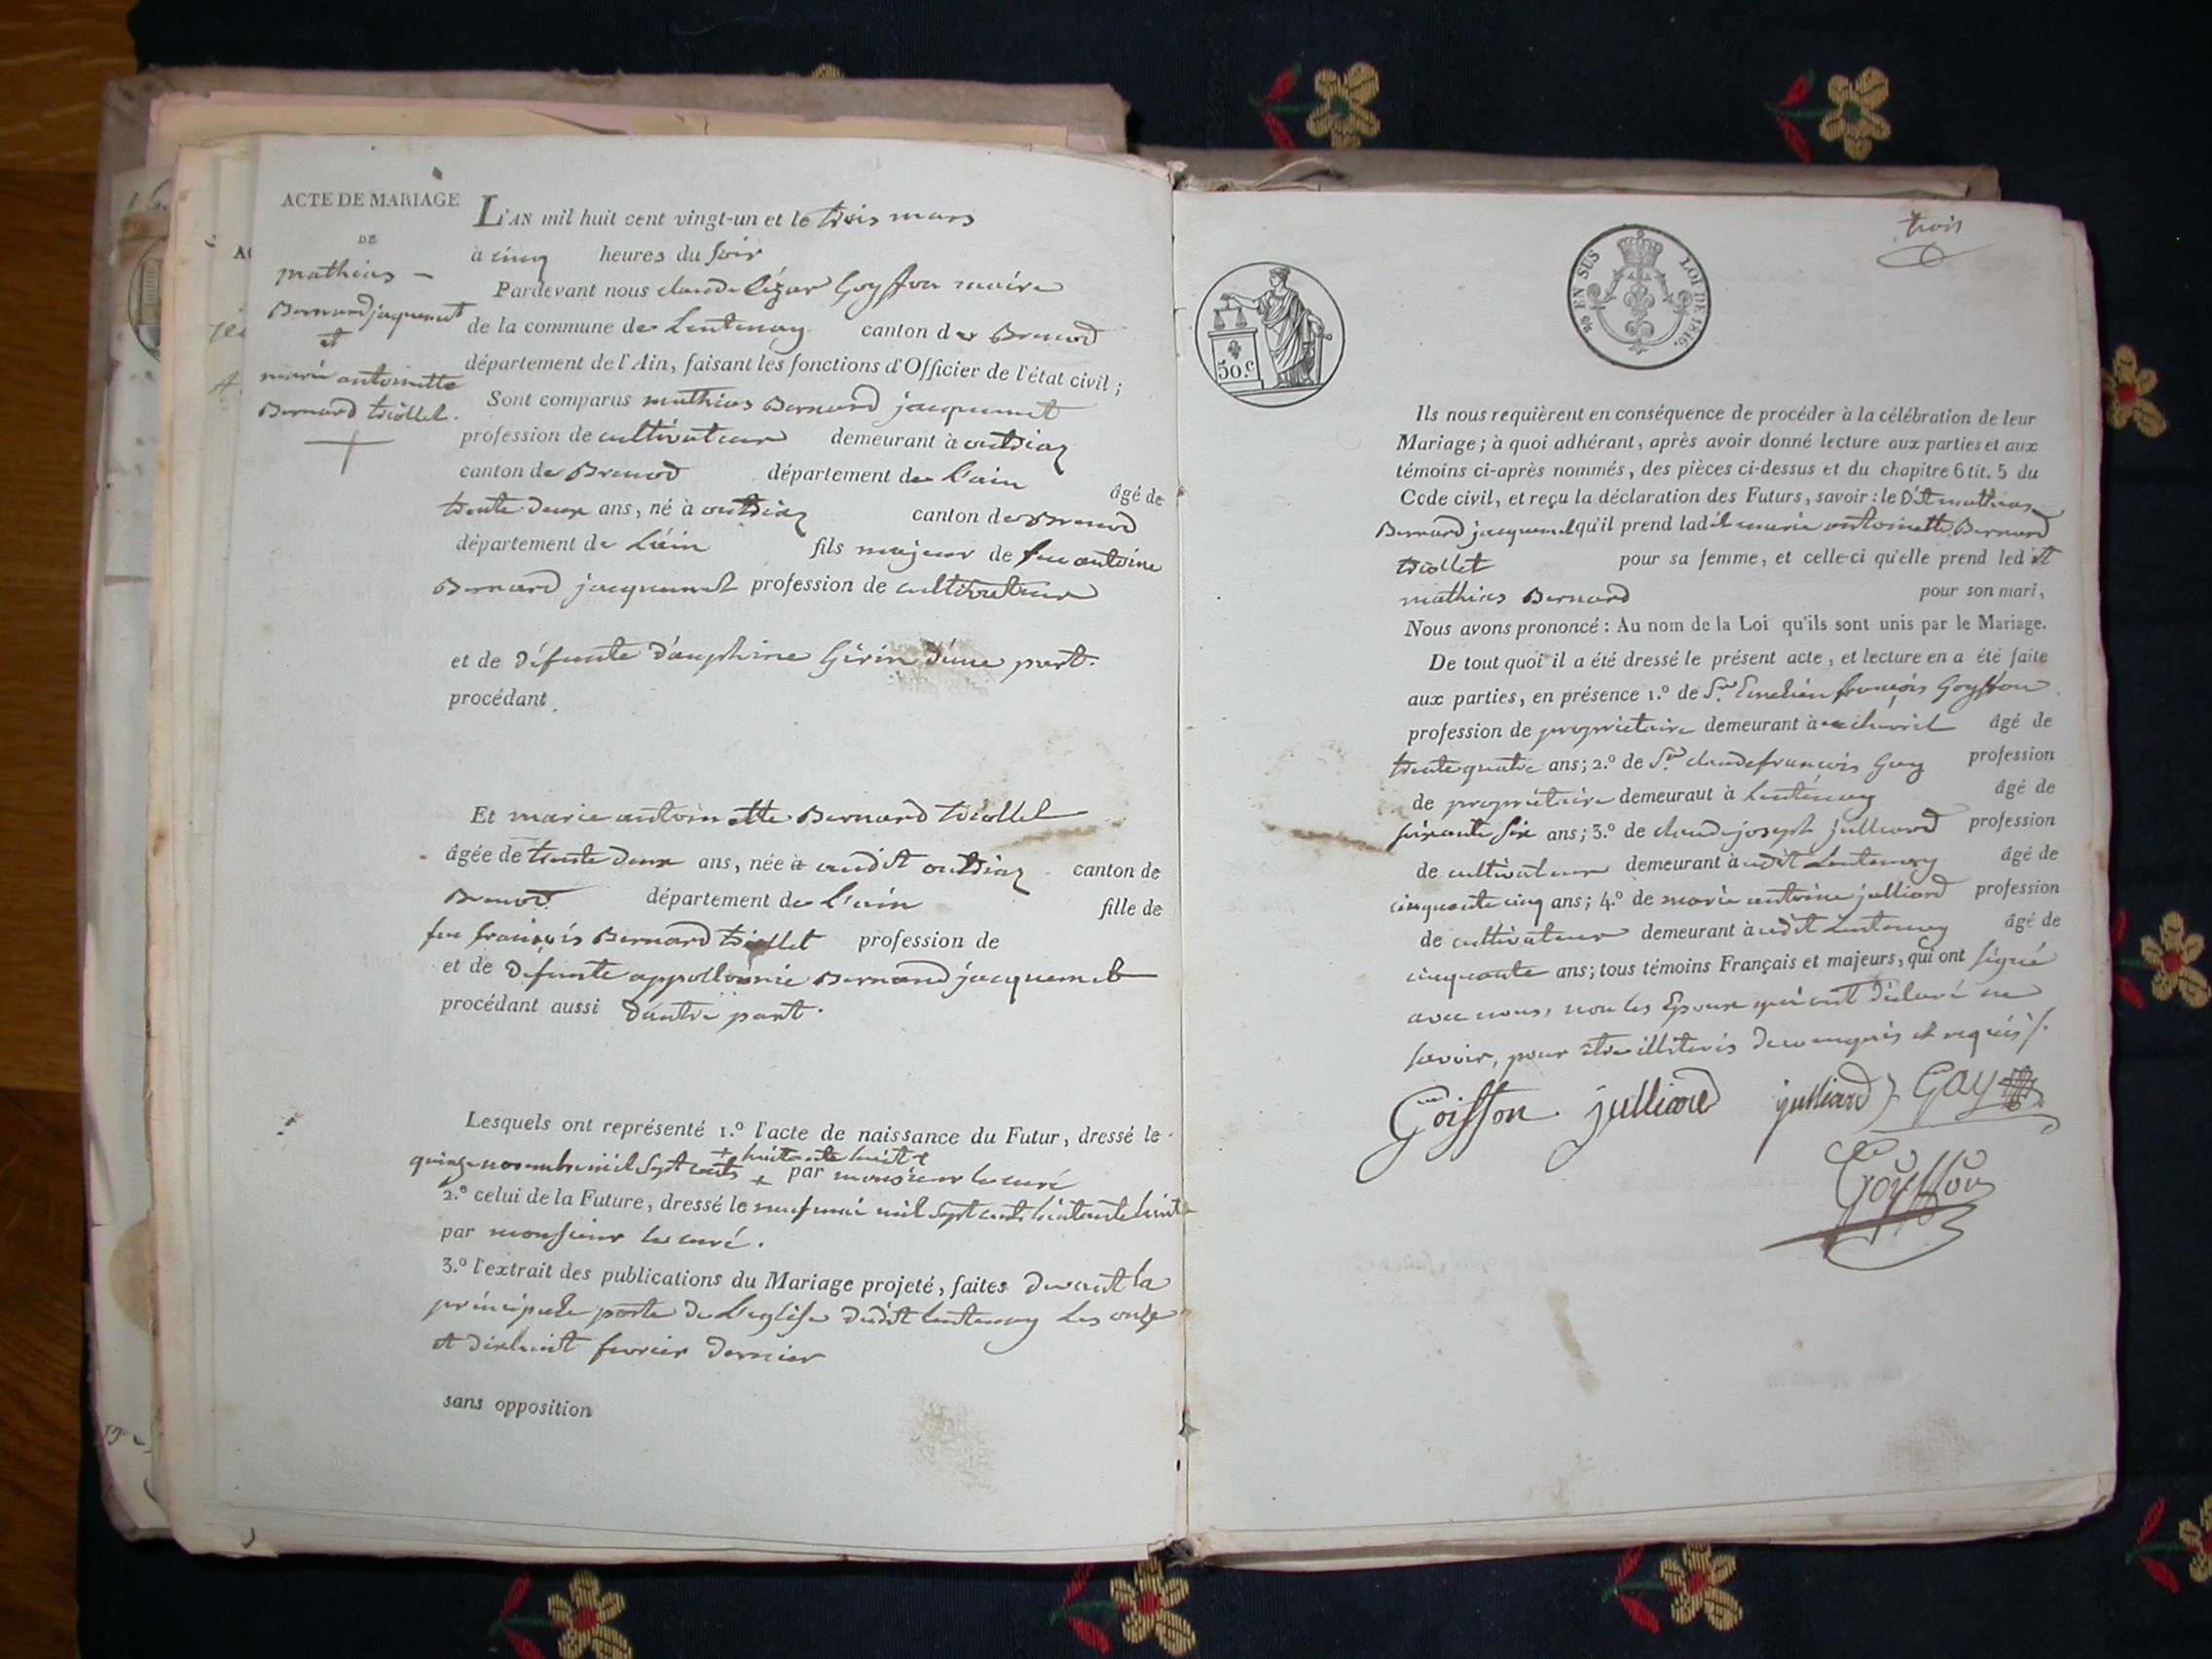 ACTE DE MARIAGE
DE
mathias
Bernard jaquemet
et
marie antoinette
Bernard triollet.
L'AN mil huit cent vingt-un et le trois mars
à cinq heures du soir
Pardevant nous claude César Goyffon maire
de la commune de Lentenay canton de Brenod
département de l'Ain, faisant les fonctions d'Officier de l'état civil ;
Sont comparus mathias Bernard jacquemet
profession de cultivateur demeurant à outriaz
canton de Brenod département de L'ain âgé de
trente deux ans, né à outriaz canton de Brenod
département de L'ain fils majeur de feu antoine
Bernard jacquemet profession de cultivateur
et de défunte dauphine Girin d'une part.
procédant
Et marie antoinette Bernard triollet
âgée de trente deux ans, née à audit outriaz canton de
Brenod département de L'ain fille de
feu françois Bernard triollet profession de
et de défunte appollonie Bernard jacquemet
procédant aussi d'autre part.
Lesquels ont représenté 1.º l'acte de naissance du Futur, dressé le
+ huitante huit +
quinze novembre mil sept cents + par monsieur le curé
2.º celui de la Future, dressé le neuf mai mil sept cents huitante huit
par monsieur le curé.
3.º l'extrait des publications du Mariage projeté, faites devant la
principale porte de L'eglise dudit lentenay les onze
et dixhuit fevrier dernier
sans opposition
trois
50.c
EN SUS LOI DE 1816.
Ils nous requièrent en conséquence de procéder à la célébration de leur
Mariage ; à quoi adhérant, après avoir donné lecture aux parties et aux
témoins ci-après nommés, des pièces ci-dessus et du chapitre 6 tit. 5 du
Code civil, et reçu la déclaration des Futurs, savoir : le dit mathias
Bernard jacquemet qu'il prend ladite marie antoinette Bernard
triollet pour sa femme, et celle-ci qu'elle prend ledit
mathias Bernard pour son mari,
Nous avons prononcé : Au nom de la Loi qu'ils sont unis par le Mariage.
De tout quoi il a été dressé le présent acte, et lecture en a été faite
aux parties, en présence 1.º de Sr. Emelien françois Goyffon
profession de propriétaire demeurant à âgé de
trente quatre ans ; 2.º de Sr. claude françois Gay profession
de propriétaire demeurant à Lentenay âgé de
soixante six ans ; 3.º de claude joseph julliard profession
de cultivateur demeurant à udit Lentenay âgé de
cinquante cinq ans ; 4.º de marie antoine julliard profession
de cultivateur demeurant à udit Lentenay âgé de
cinquante ans ; tous témoins Français et majeurs, qui ont signé
avec nous, non les Epoux qui ont déclaré ne
savoir, pour être illiterés de ce enquis et requis.
Goiffon julliard julliard Gay
Goyffon